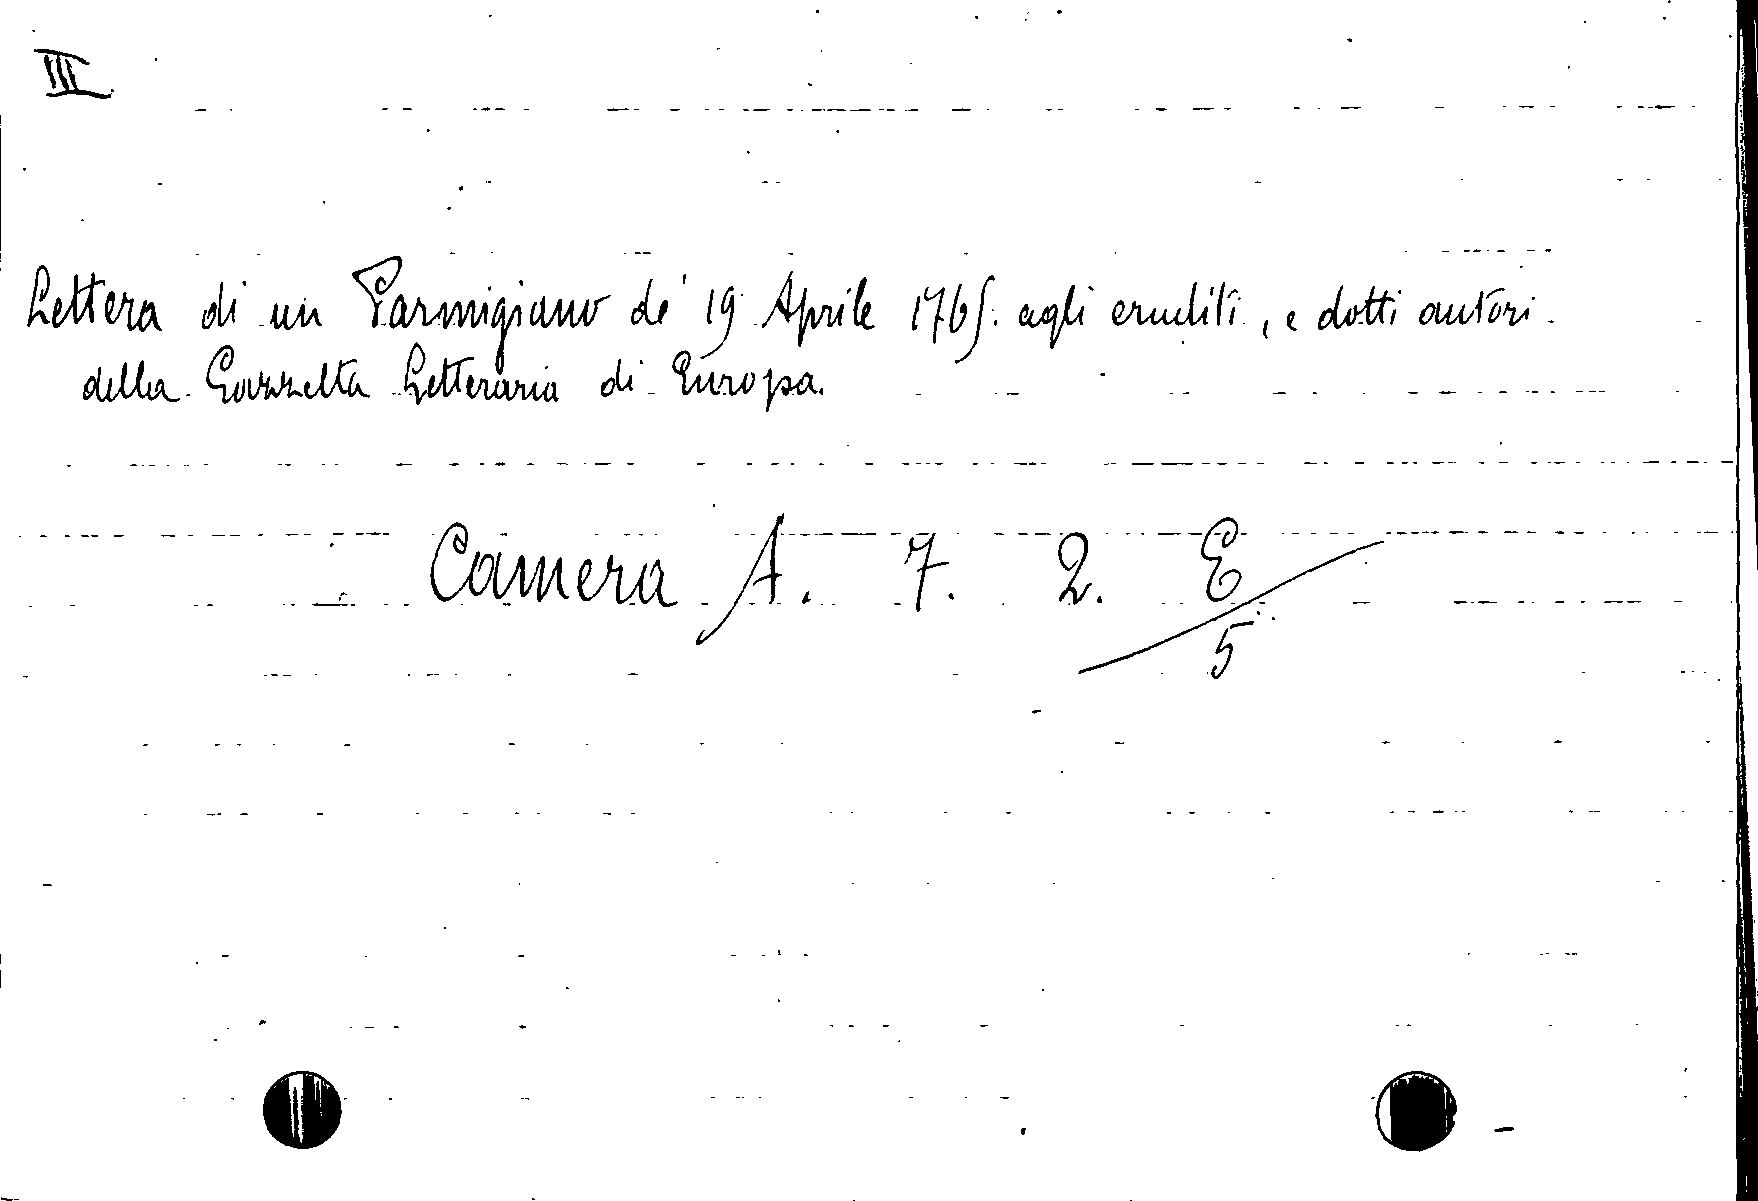 III
Lettera di un Parmigiano de' 19 Aprile 1765. agli eruditi, e dotti autori
della Gazzetta Letteraria di Europa.
Camera A. 7. 2. E
5